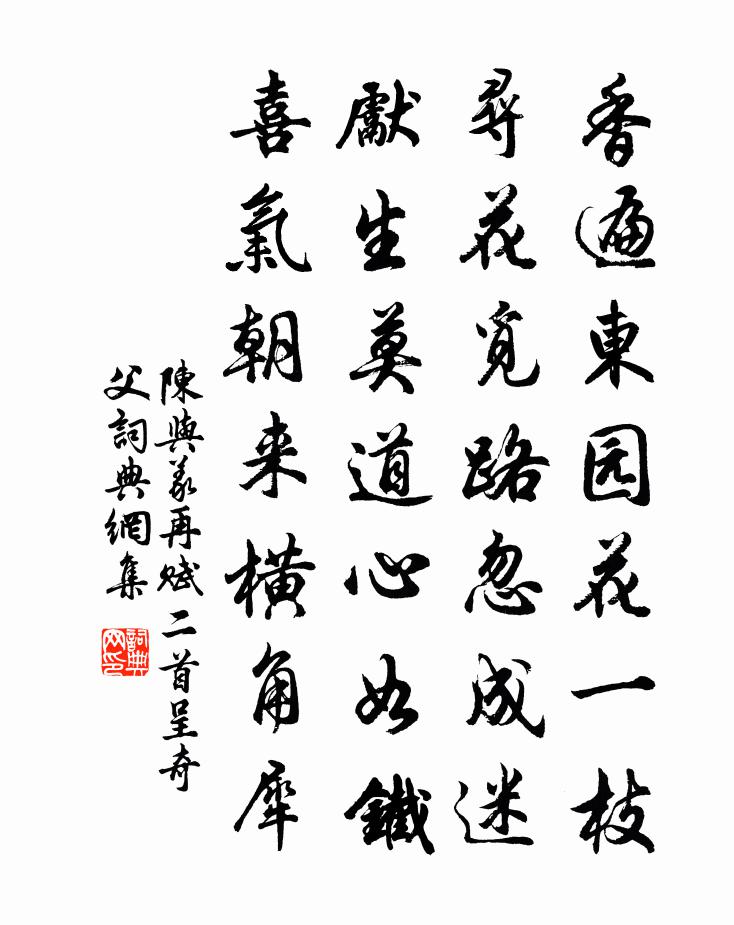 香遍東园花一枝
尋花覓路忽成迷
獻生莫道心如鐵
喜氣朝来橫角犀
陳與義再赋二首呈奇
父詞典網集
詞典网印